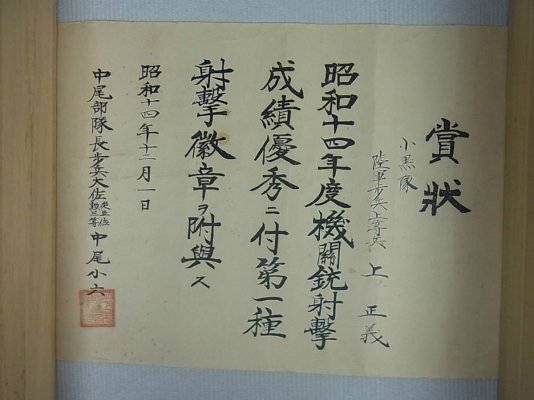 賞狀
小黒隊
陸軍歩兵上等兵
上 正義
昭和十四年度機關銃射撃
成績優秀ニ付第一種
射撃徽章ヲ附與ス
昭和十四年十二月一日
中尾部隊長歩兵大佐從五位勲三等中尾小六